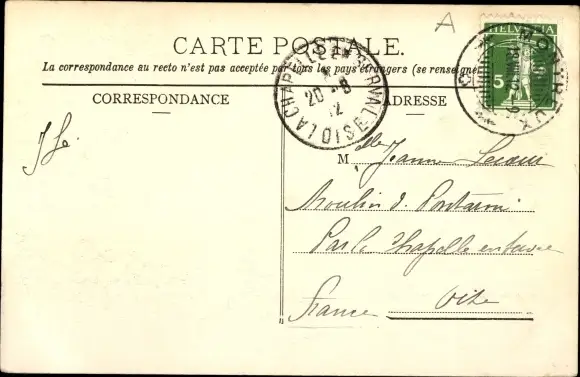 A
CARTE POSTALE.
La correspondance au recto n'est pas acceptée par tous les pays étrangers (se renseigner
CORRESPONDANCE
ADRESSE
LA CHAPELLE EN SERVAL OISE
20 - 8
12
HELVETIA
5
MONTREUX
Mlle Jeanne
Moulin de
Par la Chapelle en
France Oise